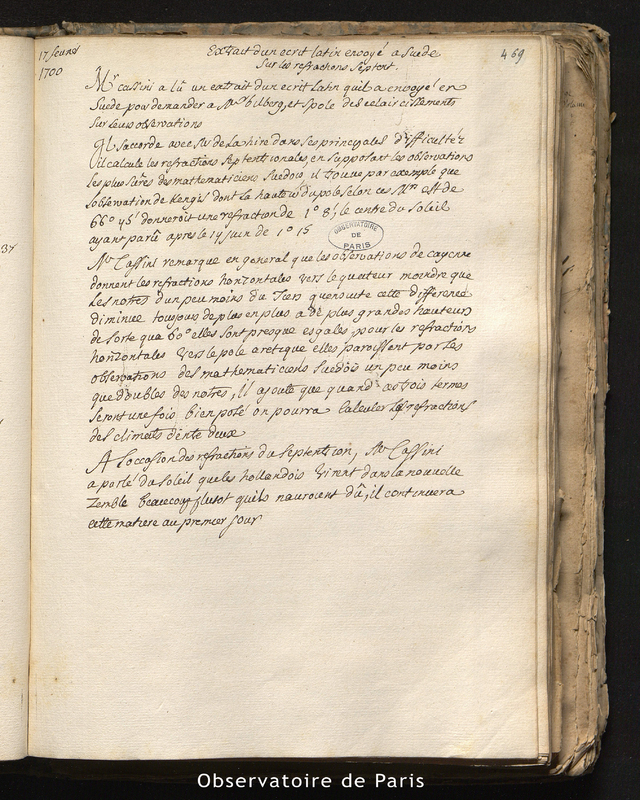 17 feuri
1700
Extrait d'un ecrit latin envoyé a Suede
Sur les refractions Septent.
469
Mr cassini a lû un extrait d'un ecrit Latin quil a envoyé en
Suede pour demander a Mrs bilberg, et Spole des eclaircissements
Sur leurs observations
Il saccorde avec Mr de la hire dans ses principales difficultéz
il calcule les refractions Septentrionales, en supposant les observations
les plus sûres des mathematiciens Suedois, il trouve par exemple que
l'observation de Kengis dont la hauteur du pole selon ces Mrs est de
66° 45' donneroit une refraction de 1° 8', le centre du Soleil
ayant parû apres le 14 juin de 1° 15
OBSERVATOIRE
DE
PARIS
37
Mr Cassini remarque en general que les observations de cayenne
donnent les refractions horizontales vers lequateur moindre que
les notres d'un peu moins du Tiers quensuite cette difference
diminue toujours de plus en plus a de plus grandes hauteurs
de sorte qua 60° elles sont presque esgales, pour les refractions
horizontales vers le pole arctique elles paroissent par les
observations des mathematiciens Suedois un peu moins
que doubles des notres, il ajoute que quand ces trois termes
seront une fois bien posé on pourra Calculer les refractions
des climats d'entre deux
A l'occasion des refractions du Septentrion, Mr Cassini
a parlé du Soleil que les hollandois virent dans la nouvelle
Zemble beaucoup plutot quils nauroient dû, il continuera
cette matiere au premier jour
Observatoire de Paris